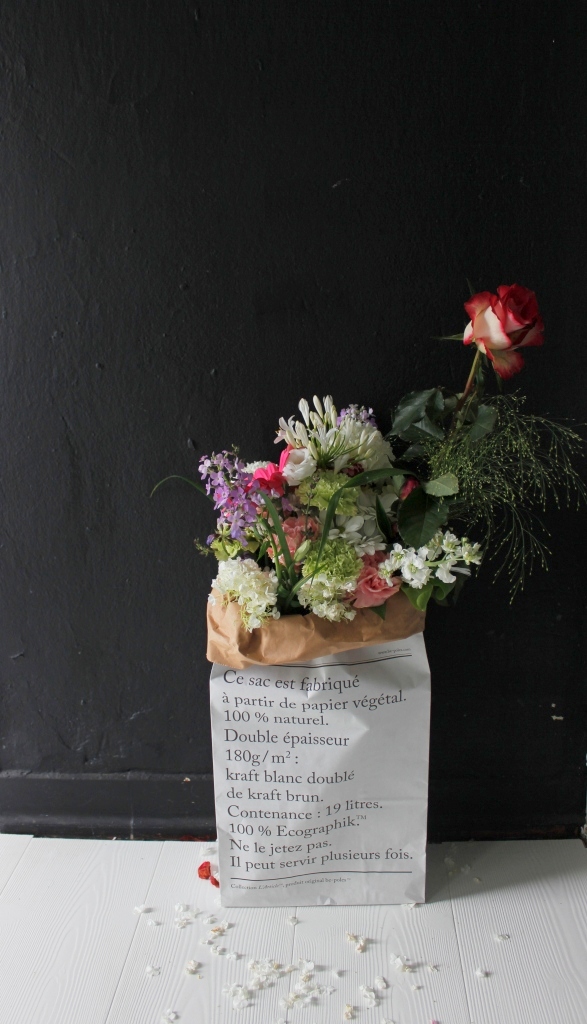 Ce sac est fabriqué
à partir de papier végétal.
100 % naturel.
Double épaisseur
180g/m² :
kraft blanc doublé
de kraft brun.
Contenance : 19 litres.
100 % Ecographik.™
Ne le jetez pas.
Il peut servir plusieurs fois.